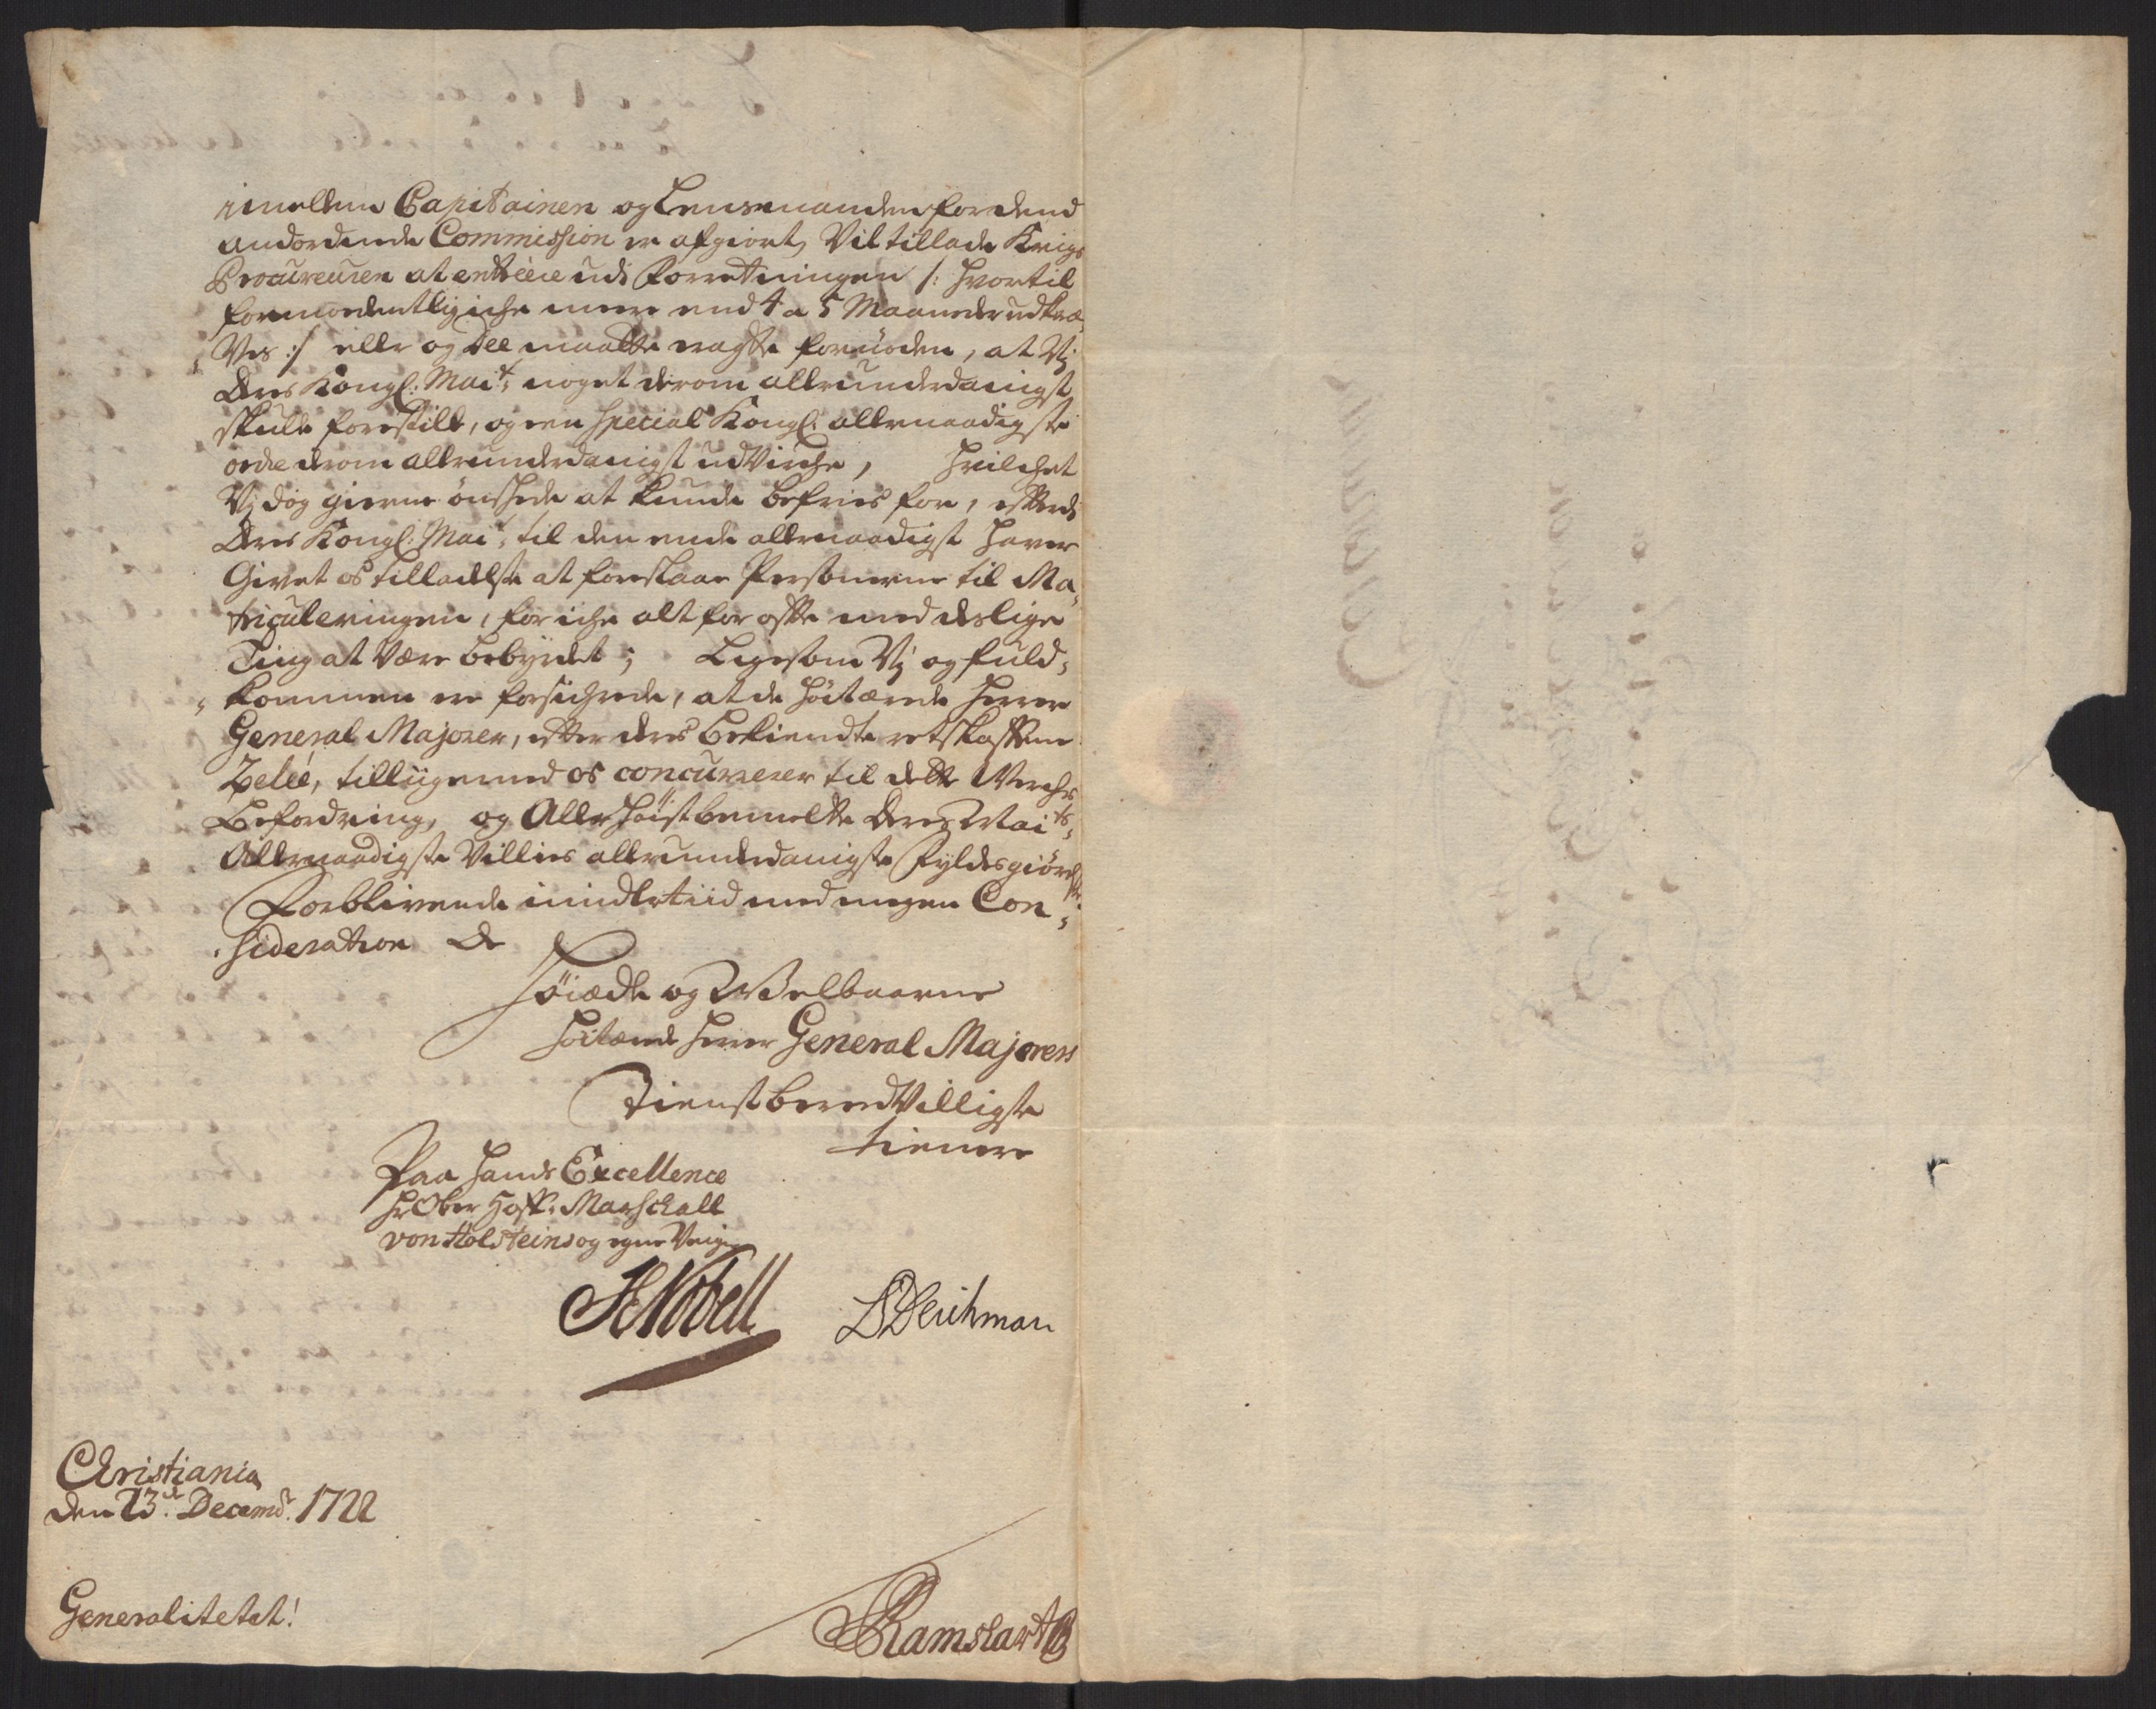 imellem Capitainen og Lensmanden for dend
andordnede Commission er afgiort, Vil tillade Krigs
Procureuren at enttrere udi Forretningen /: hvortil
formodentlig iche meere end 4 a 5 Maaneder udkræ-
ves :/ eller og dee maatte eragte fornöden, at Vj
Deres Kongl: Mait: noget derom allerunderdanigst
skulle forestille, og een special Kongl: allernaadigste
ordre derom allerunderdanigst udvirche, hvilchet
Vj dog gierne önskede at kunde befries for, efterdi
Deres Kongl: Mai.t til den ende allernaadigst haver
Givet os tilladelse at foreslaae Personerne til Ma-
triculeringen, for iche alt for ofte med deslige
Ting at være bebyrdet; Ligesom Vj og fuld-
kommen er forsichrede, at de höitærede Herrer
General Majorer, efter deres bekiendte retskaffene
Zelée, tilligemed os concurrerer til dette Verchs
Befordring, og Allerhöistbemelte Deres Maits:
Allernaadigste Villies allerunderdanigste Fyldestgiörelse.
Forblivende imidlertiid med megen Con-
sideration De
Höiædle og Welbaarne
höitærede herrer General Majorers
Tienstberedvilligste
tienere
Paa Hands Excellence
Hr Ober Hoff: Marschall
von Holsteins og egne Veigne
HNobell DDeichman
Christiania
den 23.de Decembr. 1722
Generalitetet!
Ramshart